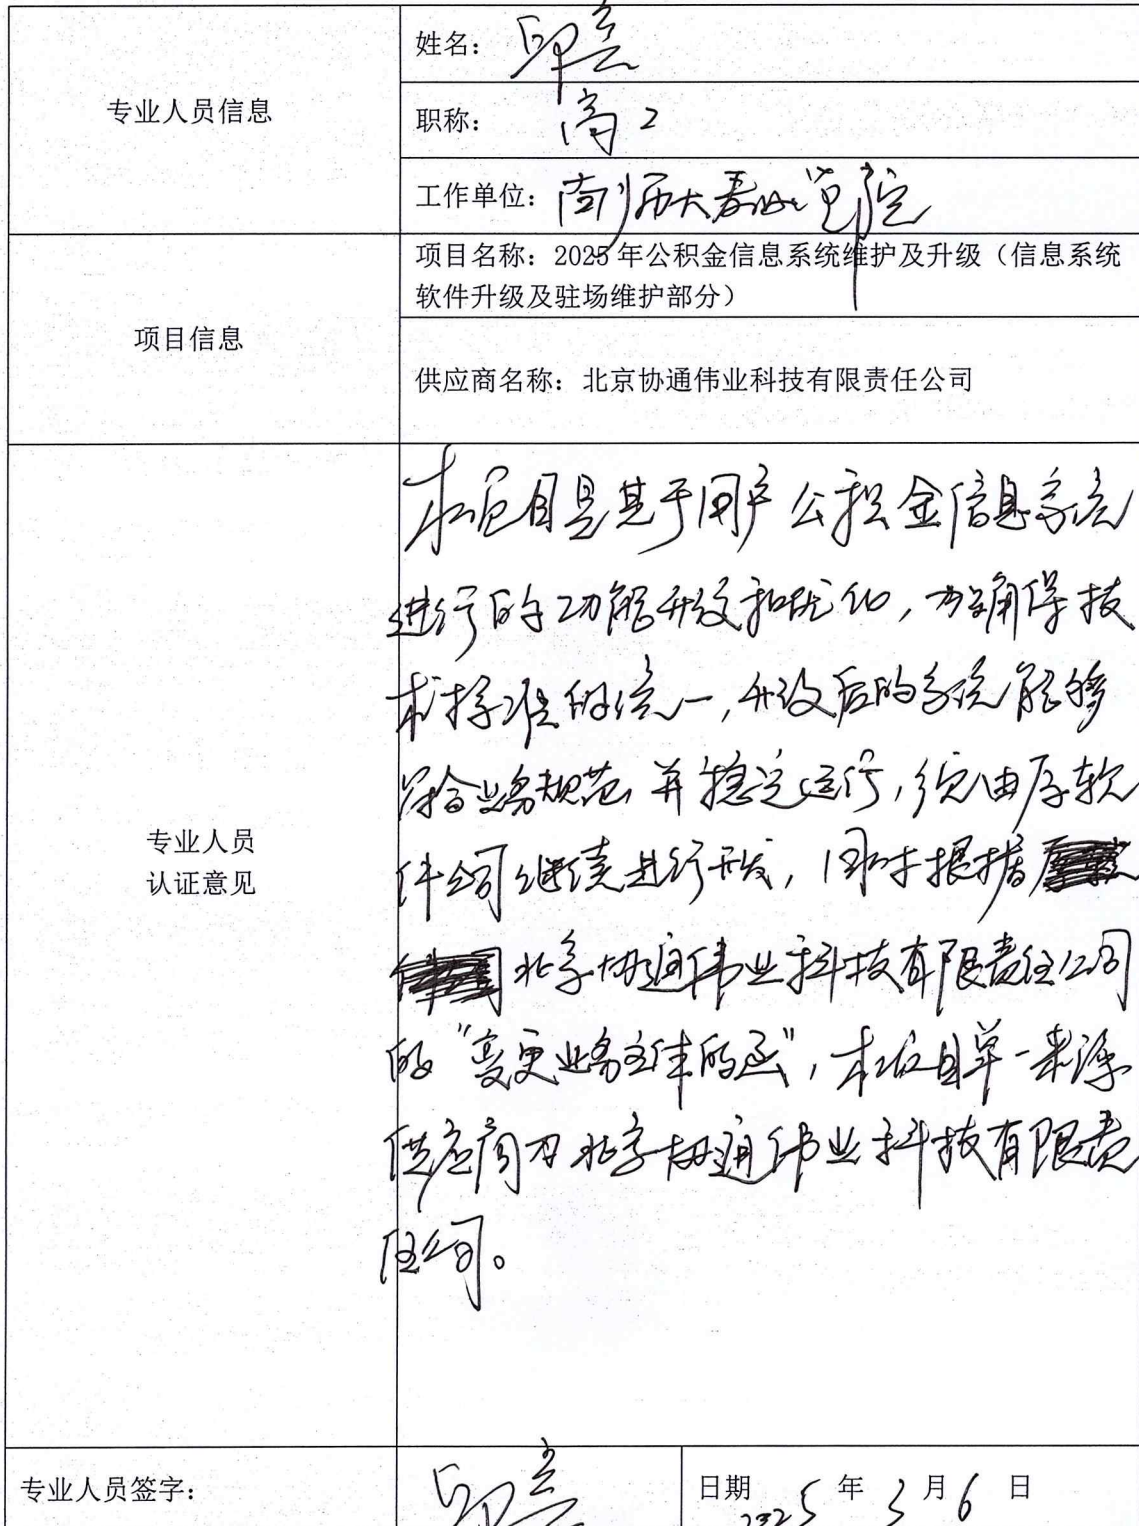 专业人员信息
姓名：印亮
职称：高工
工作单位：南师大泰州学院
项目信息
项目名称：2025年公积金信息系统维护及升级（信息系统
软件升级及驻场维护部分）
供应商名称：北京协通伟业科技有限责任公司
专业人员
认证意见
本项目是基于用户公积金信息系统
进行的功能开发和优化，为确保技
术标准的统一，开发后的系统能够
符合业务规范并稳定运行，须由原软
件公司继续进行开发，同时根据
北京协通伟业科技有限责任公司
的“变更业务主体的函”，本项目单一来源
供应商为北京协通伟业科技有限责
任公司。
专业人员签字：印亮
日期 2025年3月6日